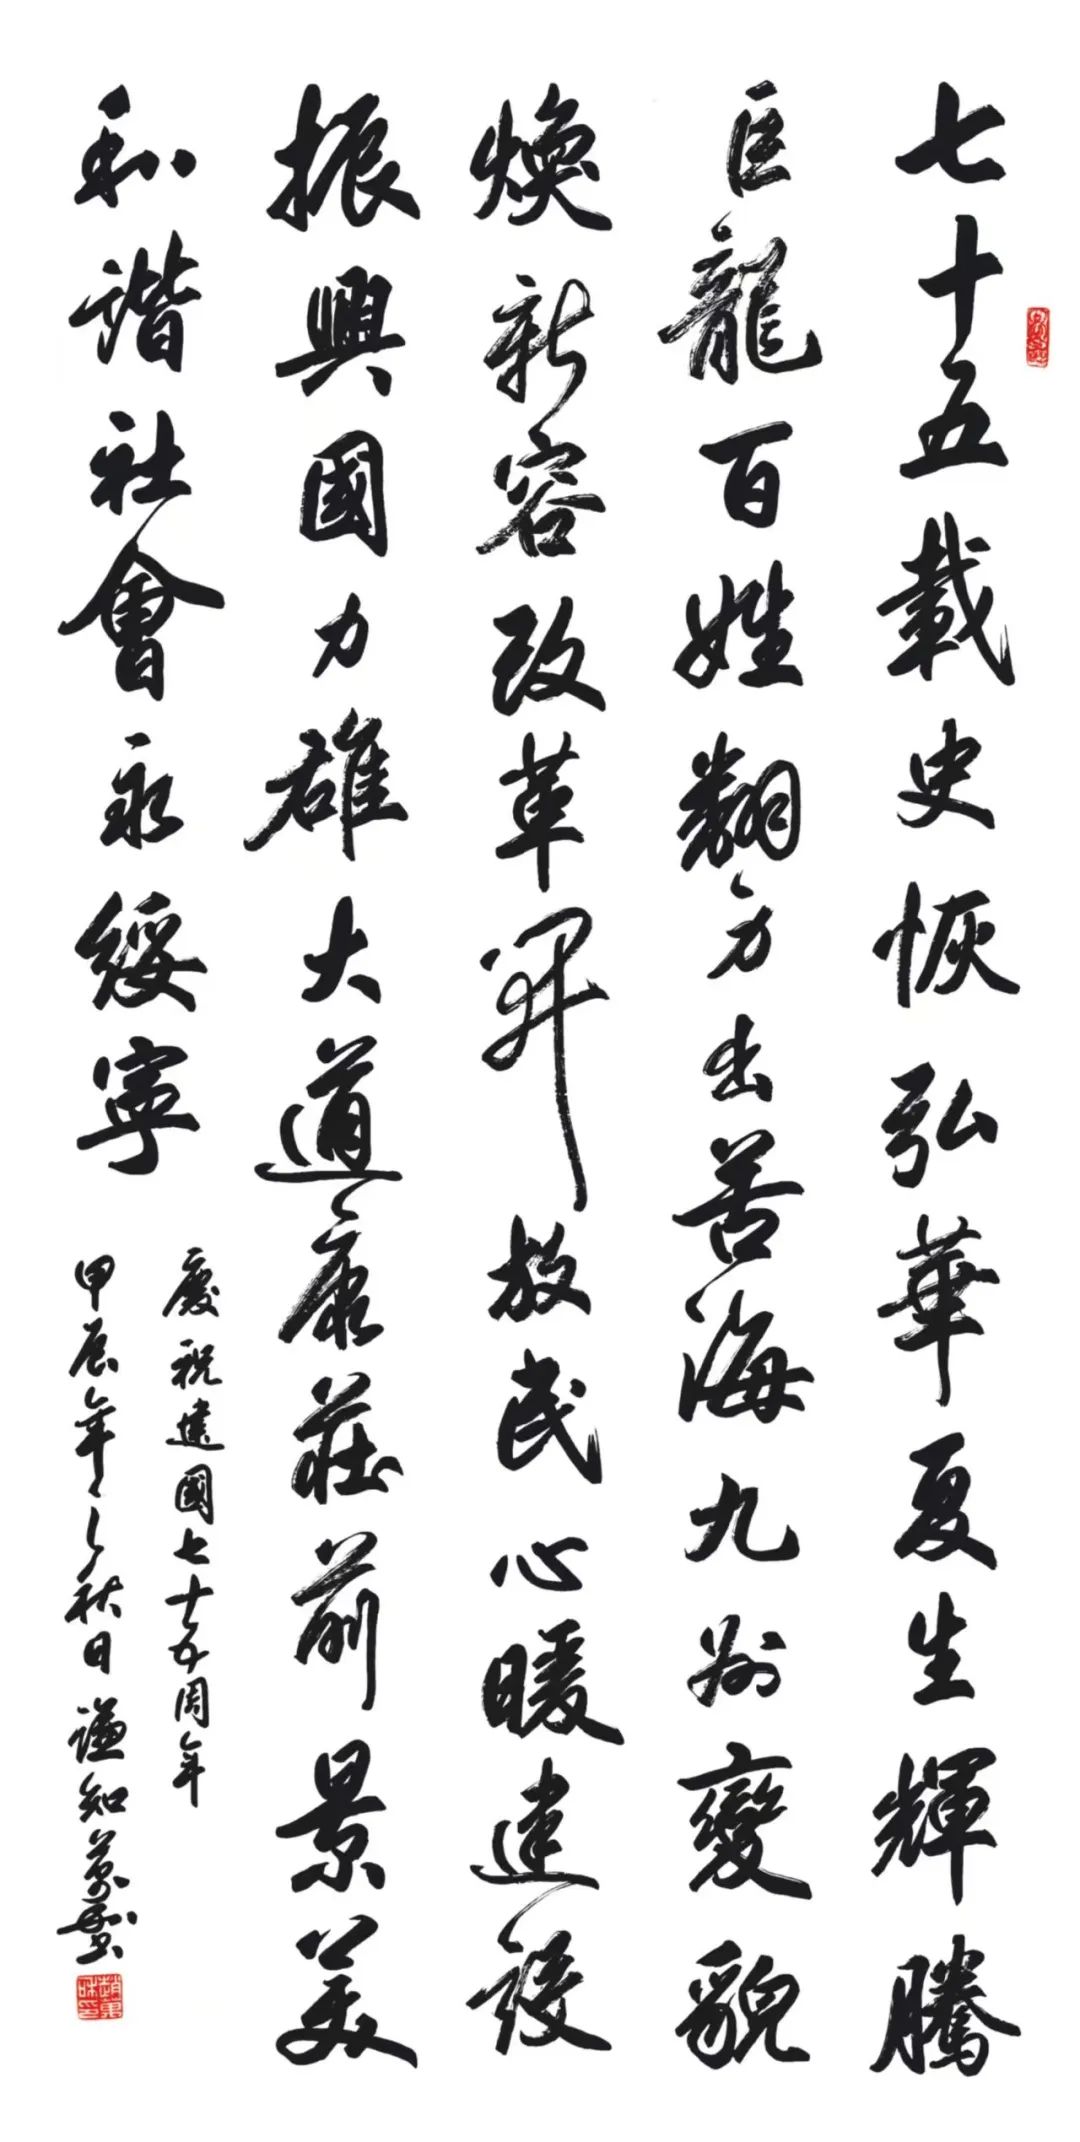 七十五載史恢弘華夏生輝騰
巨龍百姓翻身出苦海九州變貌
煥新容改革開放民心暖建設
振興國力雄大道康莊前景美
和諧社會永綏寧
慶祝建國七十五周年
甲辰年之秋日謙知萬和書